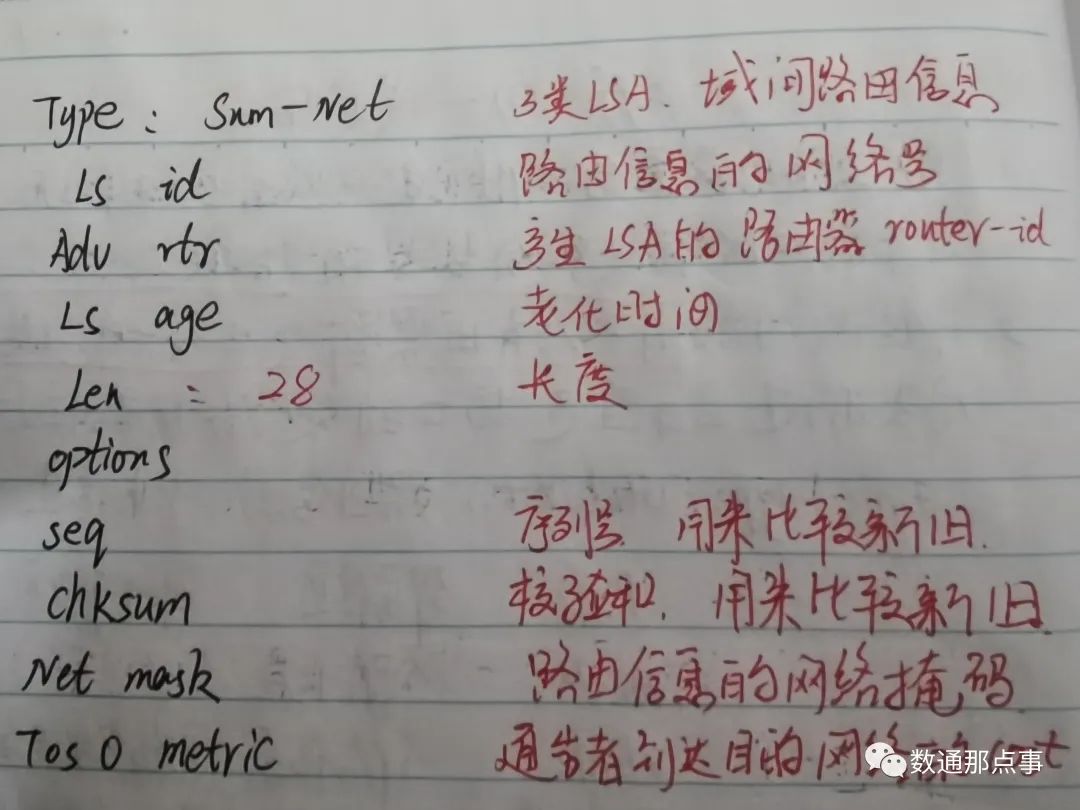 Type : Sum-Net 3类LSA. 域间路由信息
Ls id 路由信息的网络号
Adv rtr 产生LSA的路由器 router-id
Ls age 老化时间
Len : 28 长度
options
seq 序列号 用来比较新旧.
chksum 校验和, 用来比较新旧.
Net mask 路由信息的网络掩码
Tos 0 metric 通告者到达目的网络 cost
数通那点事